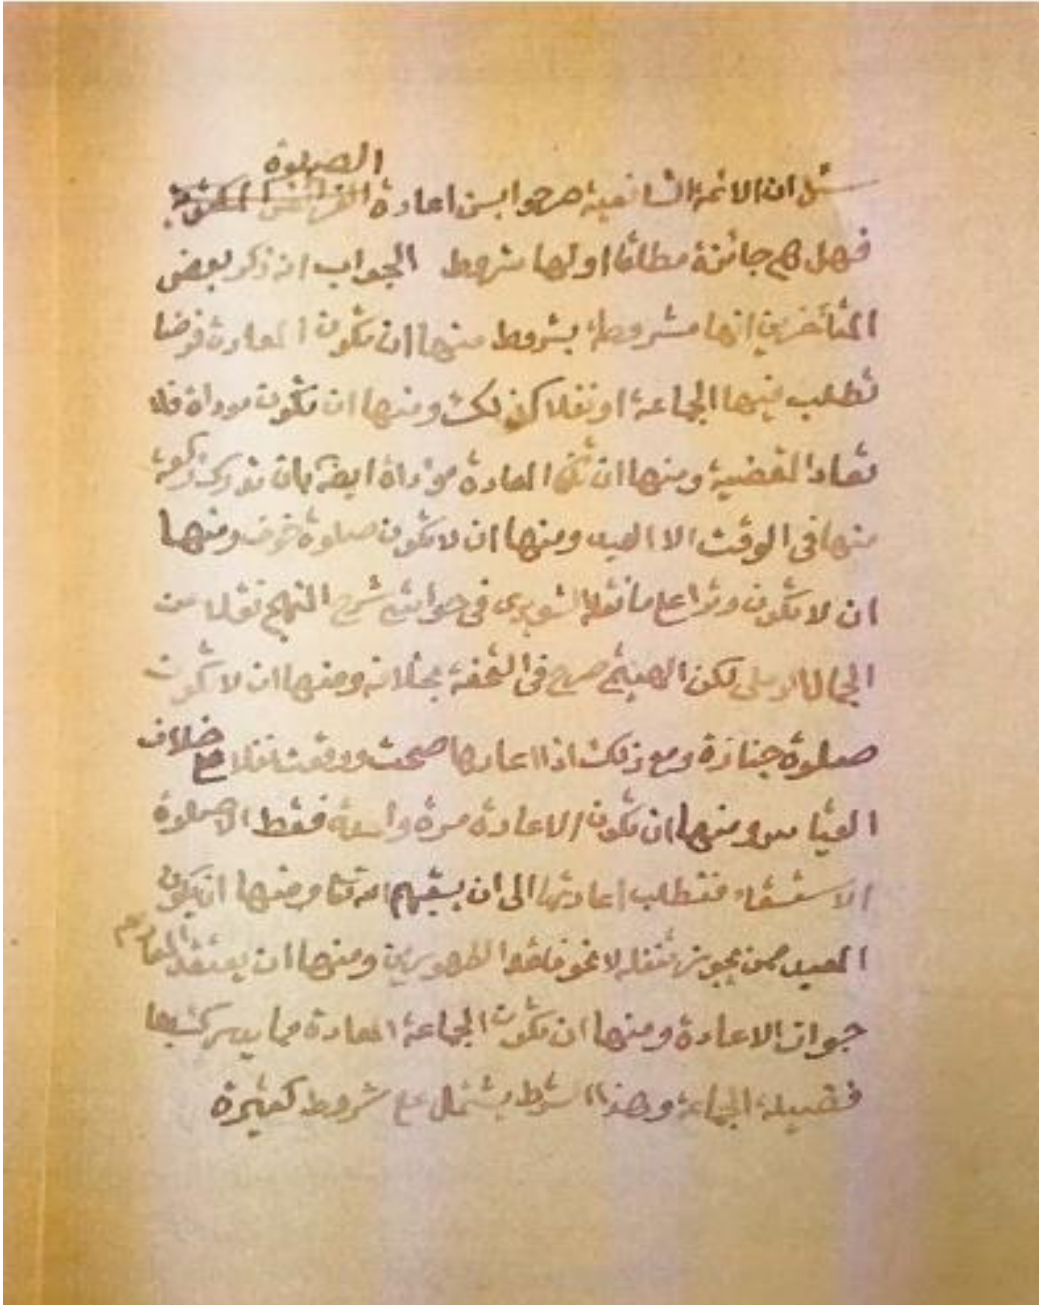 الصلوة
سئل ان الائمة الشافعية صرحوا بسن اعادة الفرائض المكتوبة
فهل هي جائزة مطلقا او لها شروط الجواب انه ذكر بعض
المتأخرين انها مشروطة بشروط منها ان تكون المعادة فرضا
تطلب فيها الجماعة او نفلا كذلك ومنها ان تكون موداة فلا
تعاد المقضية ومنها ان تكن المعادة موداة ايضا بان تدرك ركعة
منها فى الوقت الا العيد ومنها ان لا تكون صلوة خوف ومنها
ان لا تكون وترا على ما نقله الشوبرى فى حواشى شرح المنهج نقلا عن
الجمال الرملى لكن الهيتمى صرح فى التحفة بخلافه ومنها ان لا تكون
صلوة جنازة ومع ذلك اذا اعادها صحت ووقعت نفلا على خلاف
القياس ومنها ان تكون الاعادة مرة واحدة فقط الا صلوة
الاستسقاء فتطلب اعادتها الى ان يسقيهم الله تعا ومنها ان يكون
المعيد ممن يجوز تنفله لا نحو فاقد الطهورين ومنها ان يعتقد الماموم
جواز الاعادة ومنها ان تكون الجماعة المعادة مما يدرك بها
فضيلة الجماعة وهذا الشرط يشتمل على شروط كثيرة